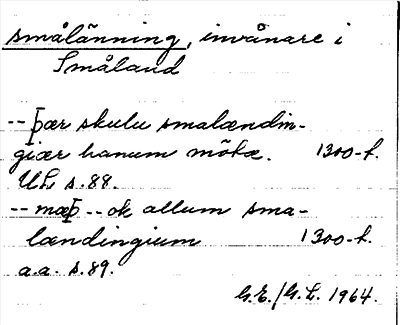 smålänning, invånare i
Småland
-- þær skulu smalændin-
giær hanum möta. 1300-t.
UL s.88.
-- mæþ -- ok allum sma-
lændingium 1300-t.
a.a. s.89.
G.E./G.L. 1964.